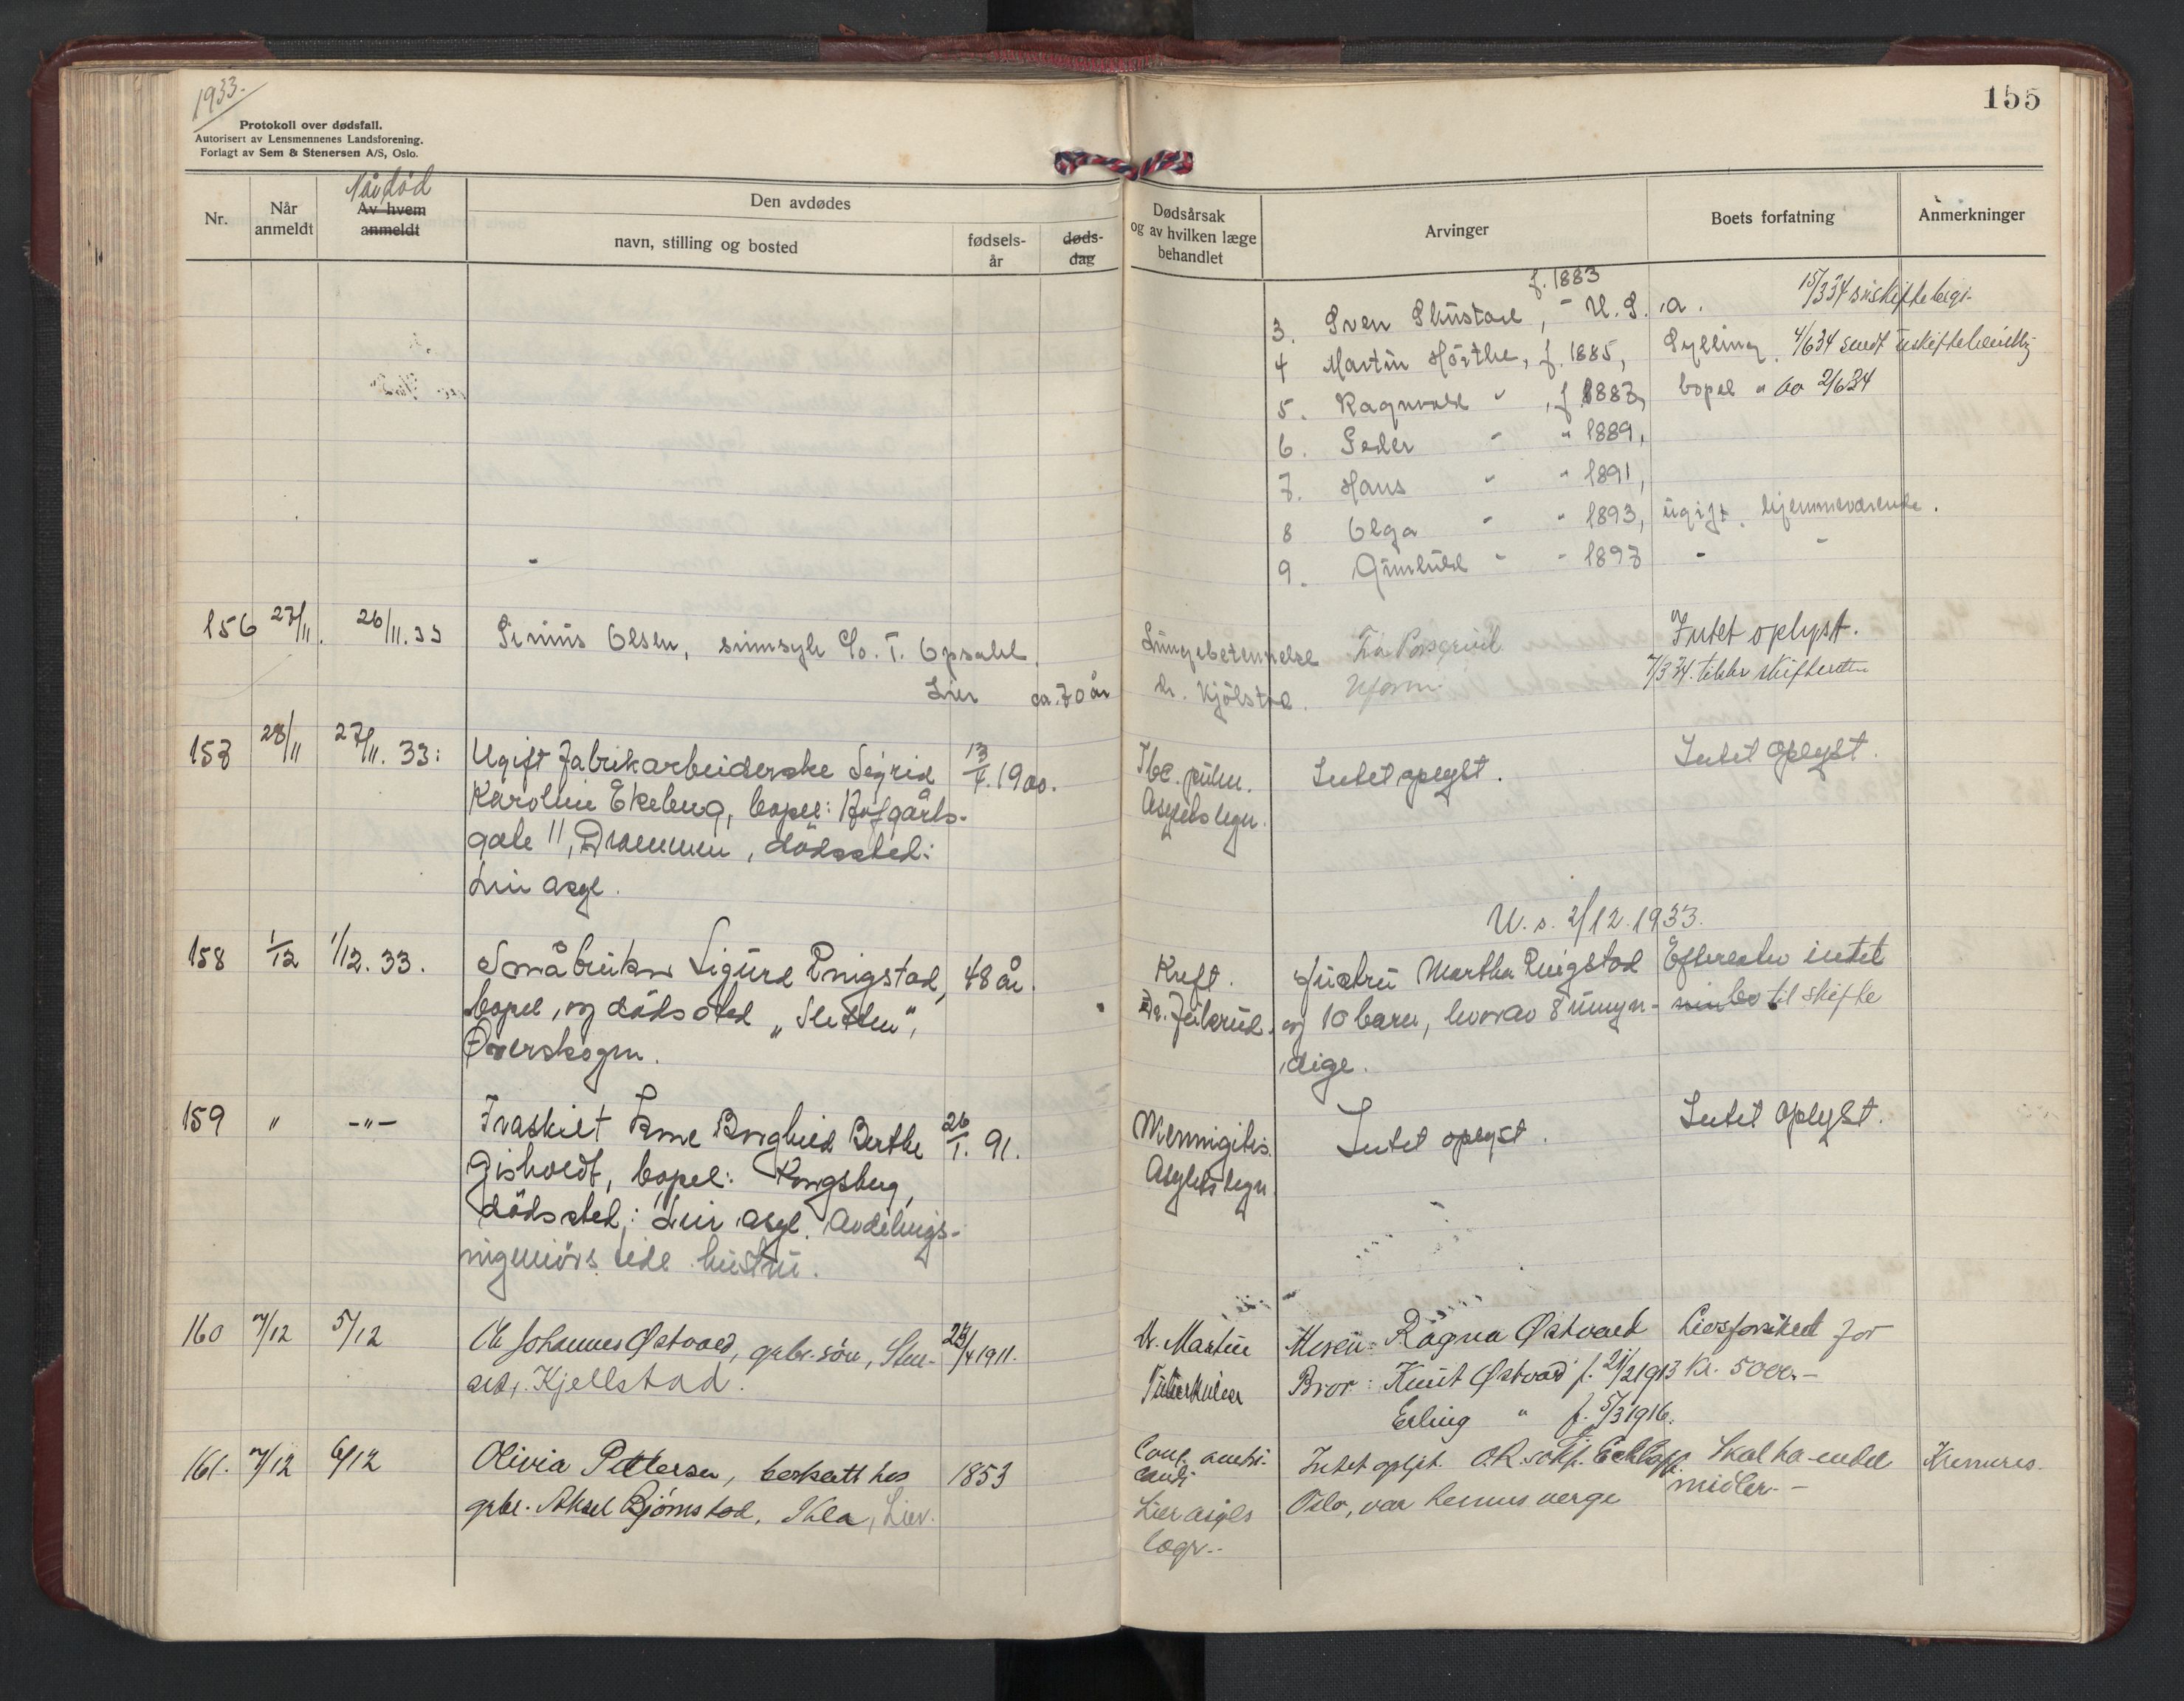 1933.
155
Protokoll over dødsfall.
Autorisert av Lensmennenes Landsforening.
Forlagt av Sem & Stenersen A/S, Oslo.
Nr.
Når anmeldt
Når død
Av hvem anmeldt
Den avdødes
navn, stilling og bosted
fødsels-
år
døds-
dag
Dødsårsak
og av hvilken læge
behandlet
Arvinger
Boets forfatning
Anmerkninger
f. 1883
3. Sven Skustad, - U. S. a. 15/3 34
4 Martin Hörthe, f. 1885, Sylling. 4/6 34 sendt
5. Ragnvald " , f 1887, bopel " 2/6 34
6. Peder " " 1889,
7. Hans " " 1891,
8 Olga " " 1893, ugift, hjemmeværende.
9. Gunhild " " 1897 - "
156 27/11. 26/11. 33 Olsen, c/o. T. Opsahl. Lungebetennelse Intet oplyst.
Lier ca. 70 år dr. Kjölstad. 7/3 34. skifteretten
157 28/11 27/11. 33: Ugift fabrikarbeiderske Sigrid 13/4. 1900. Tbc. pulm. Intet oplyst. Intet oplyst.
Karoline Ekeberg, bopel: asylets legn.
gate 11, Drammen, dödssted:
Lier asyl.
U. s. 2/12. 1933.
158 1/12 1/12. 33. Småbruker Sigurd Ringstad, 48 år. Kreft. Hustru Martha Ringstad Efterlater intet
bopel, og dödssted „Sletten", Dr. og 10 barn, hvorav 8 umyn- bo til skifte
Överskogen. dige.
159 " -"- Fraskilt Frue Borghild Berthe 26/1. 91. Menningitis. Intet oplyst. Intet oplyst.
Gisholdt, bopel: Kongsberg, Asylets legn.
dödssted: Lier asyl. Avdelings-
ingeniörs hustru.
160 7/12 5/12 Johannes Østvold, grbr. sön, 1911. Dr. Martin Moren: Ragna Østvold Livsforsikret for
Kjellstad. Tuberkulose Bror: Knut Østvold f. 21/2 1913 kr. 5000.-
Erling " f. 5/3 1916.
161. 7/12 6/12 Olivia Pettersen, bortsatt hos 1853 Intet oplyst. O.R. sakf. Skal ha endel
grbr. Aksel Bjørnstad, Lier. Lier asyls Oslo, var hennes verge midler.-